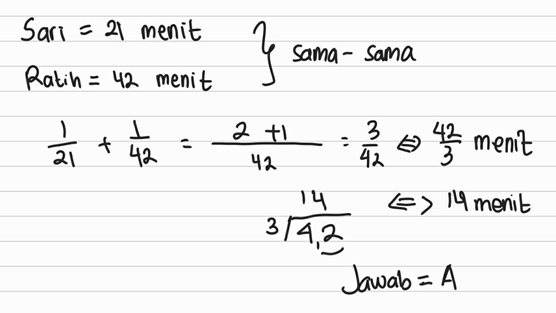 Sari = 21 menit
Ratih = 42 menit } sama - sama
1/21 + 1/42 = 2 + 1/42 = 3/42 ⇔ 42/3 menit
14 <=> 14 menit
3/4,2
Jawab = A